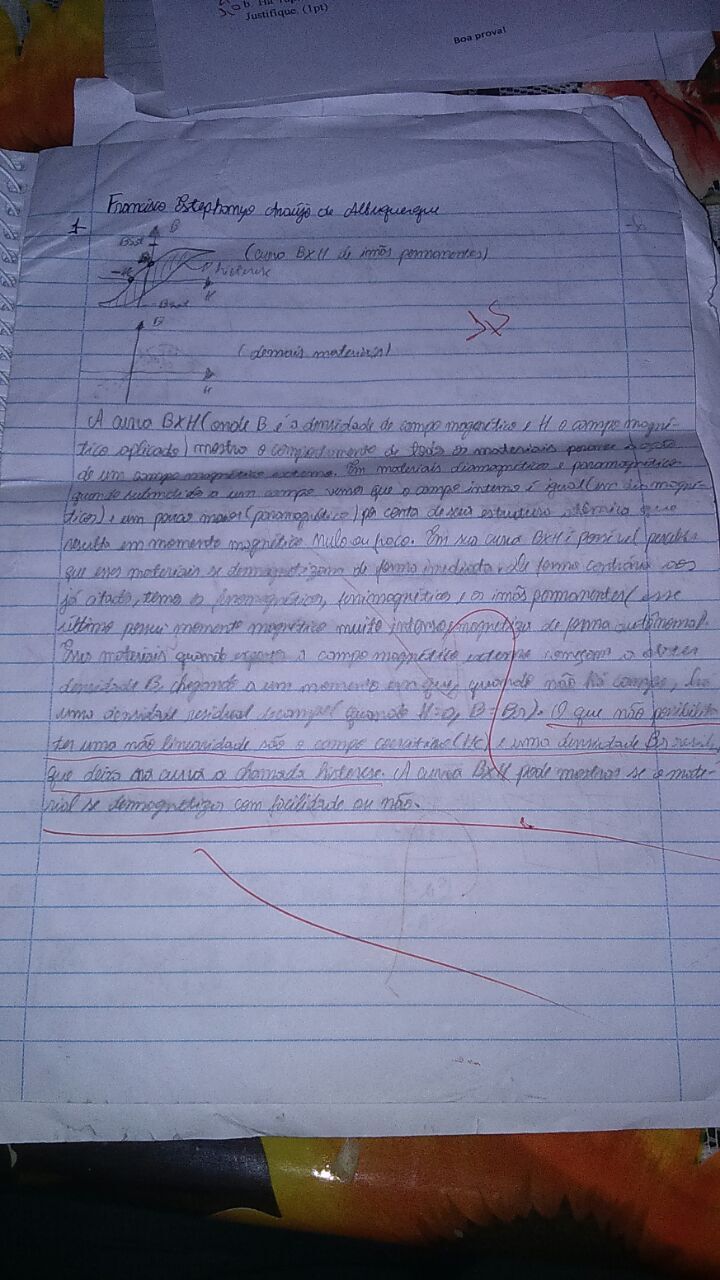 b.
Justifique. (1pt)
Boa prova!
Francisco Estephanyo Araújo de Albuquerque
1-
B
Bsat
(curva BXH de imãs permanentes)
histerese
H
B
(demais materiais)
H
A curva BXH (onde B é a densidade de campo magnético e H o campo magné-
tico aplicado) mostra o comportamento de todos os materiais
de um campo magnético externo. Em materiais diamagnético e paramagnético
quando submetido a um campo vemos que o campo interno é igual (em diamagné-
ticos) e um pouco maior (paramagnético) por conta de sua estrutura atômica que
resulta em momento magnético nulo ou fraco. Em sua curva BXH é possível perceber
que esses materiais se demagnetizam de forma imediata. De forma contrária aos
já citados, temos os ferrimagnético e os imãs permanentes (esse
último possui momento magnético muito intenso, magnetiza de forma autônoma).
Esses materiais quando exposto a campo magnético externo começam a obter
densidade B, chegando a um momento em que, quando não há campo, há
uma densidade residual quando H=0, B=Br). O que não possibilita
ter uma não linearidade são o campo coercitivo (Hc) e uma densidade Br
que deixa na curva a chamada histerese. A curva BXH pode mostrar se o mate-
rial se demagnetiza com facilidade ou não.